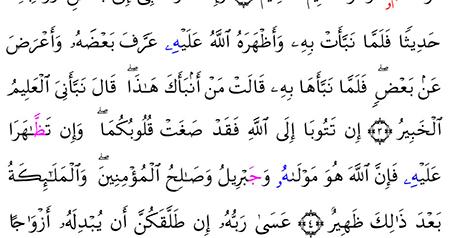 حَدِيثًا فَلَمَّا نَبَّأَتْ بِهِۦ وَأَظْهَرَهُ اللَّهُ عَلَيْهِۦ عَرَّفَ بَعْضَهُۥ وَأَعْرَضَ
عَنۢ بَعْضٍۖ فَلَمَّا نَبَّأَهَا بِهِۦ قَالَتْ مَنْ أَنۢبَأَكَ هَـٰذَاۖ قَالَ نَبَّأَنِىَ الْعَلِيمُ
الْخَبِيرُ ﴿٣﴾ إِن تَتُوبَا إِلَى اللَّهِ فَقَدْ صَغَتْ قُلُوبُكُمَاۖ وَإِن تَظَّـٰهَرَا
عَلَيْهِۦ فَإِنَّ اللَّهَ هُوَ مَوْلَىٰهُۥ وَجَبْرِيلُ وَصَـٰلِحُ الْمُؤْمِنِينَۖ وَالْمَلَـٰٓئِكَةُ
بَعْدَ ذَٰلِكَ ظَهِيرٌ ﴿٤﴾ عَسَىٰ رَبُّهُۥٓ إِن طَلَّقَكُنَّ أَن يُبْدِلَهُۥٓ أَزْوَٰجًا